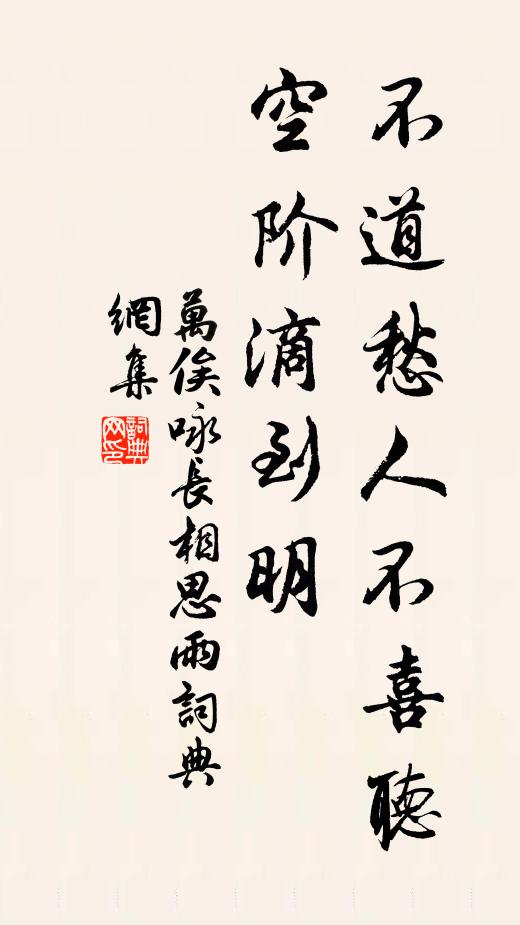 不道愁人不喜聽
空阶滴到明
萬俟咏長相思雨詞典
網集
詞典
网印